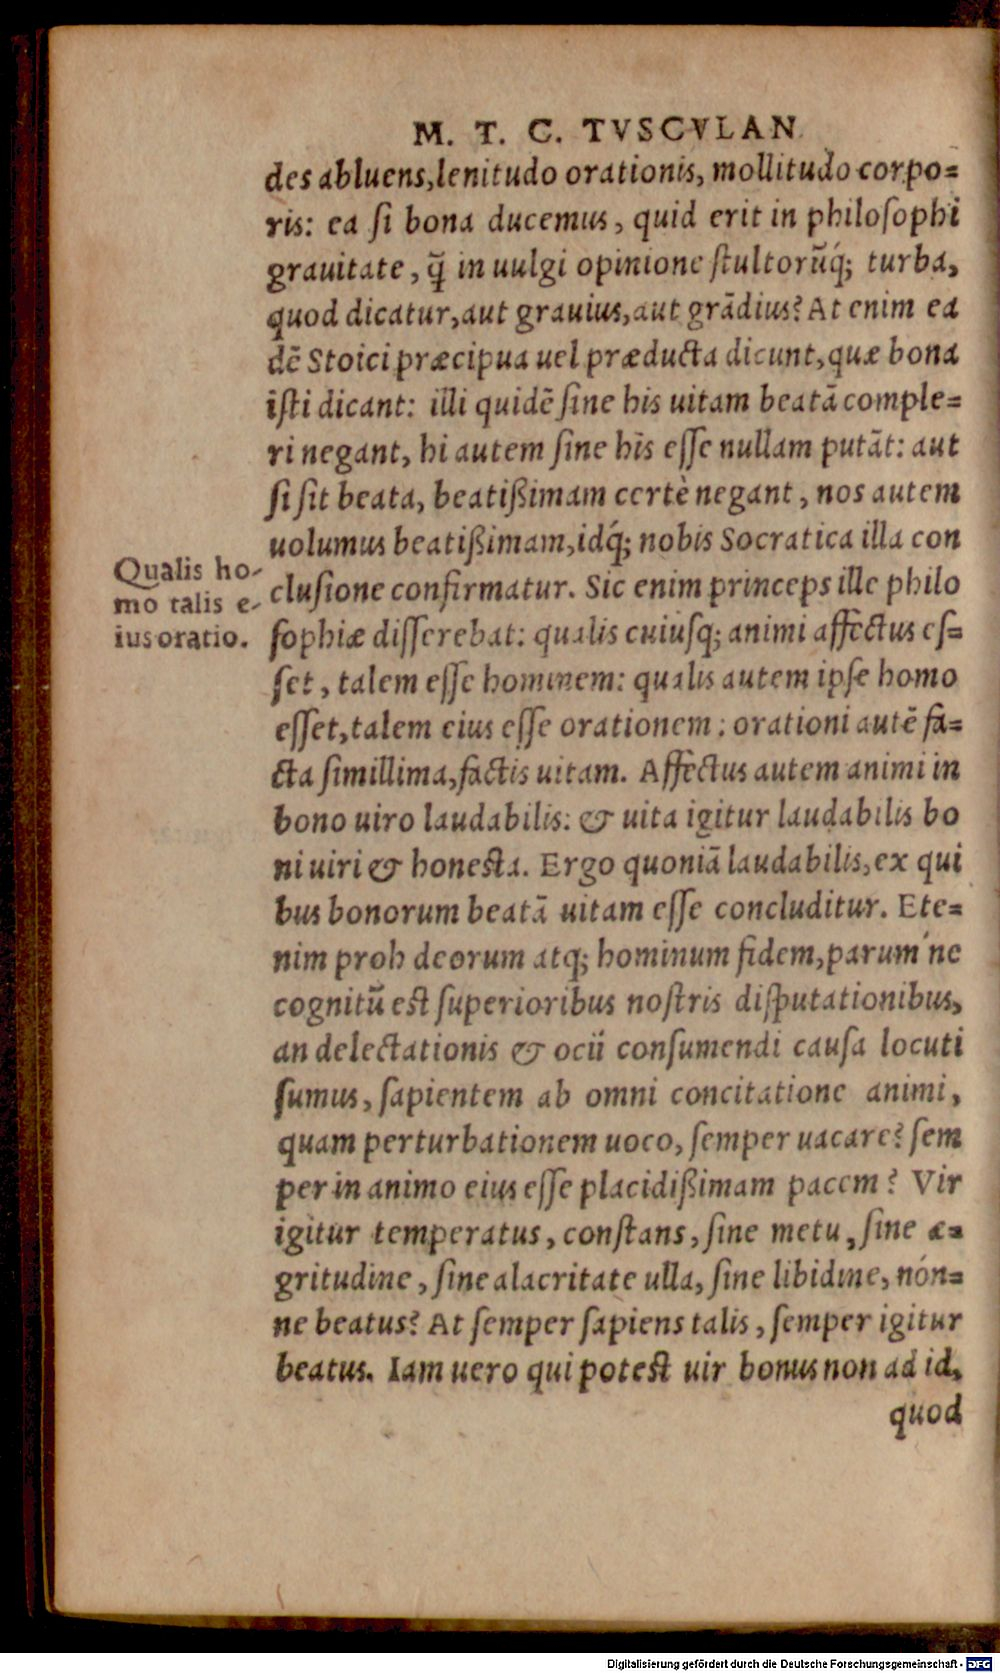 M. T. C. TVSCVLAN
des abluens, lenitudo orationis, mollitudo corpo=
ris: ea ſi bona ducemus, quid erit in philoſophi
grauitate, q̃ in uulgi opinione ſtultorũq́; turba,
quod dicatur, aut grauius, aut grãdius? At enim ea
dẽ Stoici præcipua uel præducta dicunt, quæ bona
iſti dicant: illi quidẽ ſine his uitam beatã comple=
ri negant, hi autem ſine his eſſe nullam putãt: aut
ſi ſit beata, beatißimam certè negant, nos autem
uolumus beatißimam, idq́; nobis Socratica illa con
Qualis ho-
mo talis e-
ius oratio.
cluſione confirmatur. Sic enim princeps ille philo
ſophiæ diſſerebat: qualis cuiuſq; animi affectus eſ=
ſet, talem eſſe hominem: qualis autem ipſe homo
eſſet, talem eius eſſe orationem: orationi autẽ fa=
cta ſimillima, factis uitam. Affectus autem animi in
bono uiro laudabilis: & uita igitur laudabilis bo
ni uiri & honesta. Ergo quoniã laudabilis, ex qui
bus bonorum beatã uitam eſſe concluditur. Ete=
nim proh deorum atq; hominum fidem, parum´ne
cognitũ est ſuperioribus noſtris diſputationibus,
an delectationis & ocii conſumendi cauſa locuti
ſumus, ſapientem ab omni concitatione animi,
quam perturbationem uoco, ſemper uacare? ſem
per in animo eius eſſe placidißimam pacem? Vir
igitur temperatus, conſtans, ſine metu, ſine æ=
gritudine, ſine alacritate ulla, ſine libidine, nón=
ne beatus? At ſemper ſapiens talis, ſemper igitur
beatus. Iam uero qui potest uir bonus non ad id,
quod
Digitalisierung gefördert durch die Deutsche Forschungsgemeinschaft - DFG